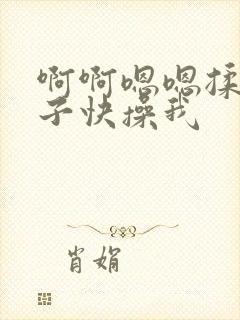 啊啊嗯嗯揉
子快操我
肖娟